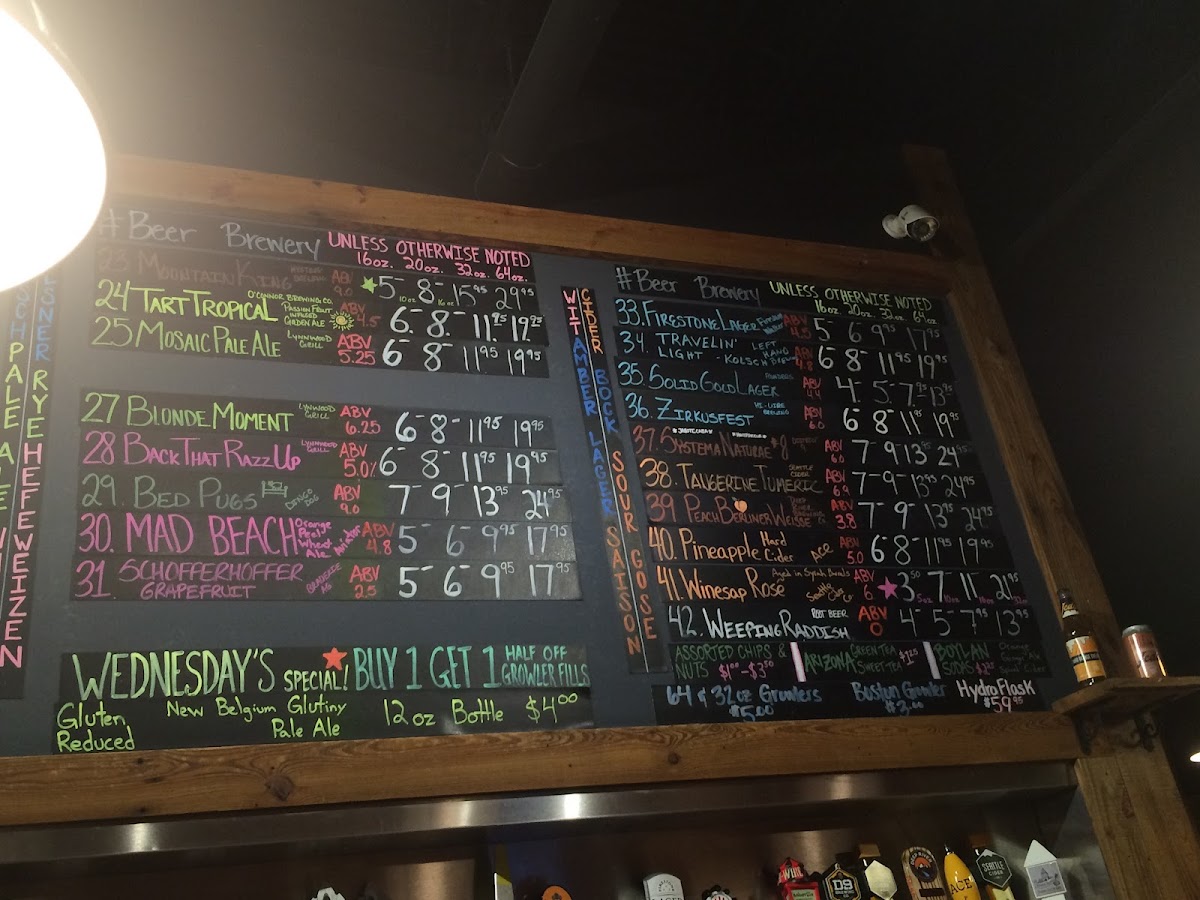 # Beer Brewery UNLESS OTHERWISE NOTED
16oz. 20oz. 32oz. 64oz.
23 MOUNTAIN KING ABV 9.0 5- 10oz 8- 16oz 15 95 29 95
24 TART TROPICAL O'CONNOR BREWING CO. PASSION FRUIT INFUSED GOLDEN ALE ABV 4.5 6- 8- 11 95 19 95
25 MOSAIC PALE ALE LYNNWOOD GRILL ABV 5.25 6- 8- 11 95 19 95
27 BLONDE MOMENT LYNWOOD GRILL ABV 6.25 6- 8- 11 95 19 95
28 BACK THAT RAZZ UP LYNNWOOD GRILL ABV 5.0% 6- 8- 11 95 19 95
29. BED PUGS DINGO DOG ABV 9.0 7- 9- 13 95 24 95
30. MAD BEACH Orange Peel Wheat Ale Aviator ABV 4.8 5- 6- 9 95 17 95
31 SCHOFFERHOFFER GRAPEFRUIT ABV 2.5 5- 6- 9 95 17 95
WEDNESDAY'S SPECIAL! BUY 1 GET 1 HALF OFF GROWLER FILLS
Gluten Reduced New Belgium Glutiny Pale Ale 12oz Bottle $4.00
PALE
PILSNER RYE HEFEWEIZEN
WIT AMBER BOCK LAGER SOUR SAISON
CIDER BOCK SOUR GOSE
# Beer Brewery UNLESS OTHERWISE NOTED
16oz 20oz. 32oz. 64oz.
33. FIRESTONE LAGER Firestone Walker ABV 4.5 5- 6- 9 95 17 95
34. TRAVELIN' LIGHT - KOLSCH LEFT HAND ABV 4.8 6- 8- 11 95 19 95
35. SOLID GOLD LAGER FOUNDERS ABV 4.4 4- 5- 7 95 13 95
36. ZIRKUSFEST HI-WIRE BREWING ABV 6.0 6- 8- 11 95 19 95
37. SYSTEMA NATURAE #8 ABV 6.0 7- 9- 13 95 24 95
38. TANGERINE TUMERIC SEATTLE CIDER ABV 6.9 7- 9- 13 95 24 95
39 PEACH BERLINER WEISSE ABV 3.8 7- 9- 13 95 24 95
40. Pineapple Hard Cider ACE ABV 5.0 6- 8- 11 95 19 95
41. Winesap Rosé Aged in Syrah Barrels Seattle Cider ABV 6 3 50 5oz 7- 10oz 11- 16oz 21 95 32oz
42. WEEPING RADDISH ROOT BEER ABV 0 4- 5- 7 95 13 95
ASSORTED CHIPS & NUTS $1.00-$3.50 ARIZONA GREEN TEA SWEET TEA $1.25 BOYLAN SODAS $2.25
64 & 32oz Growlers $5.00 Boston Growler $3.00 Hydro Flask $59.95
D9
ACE
SEATTLE CIDER